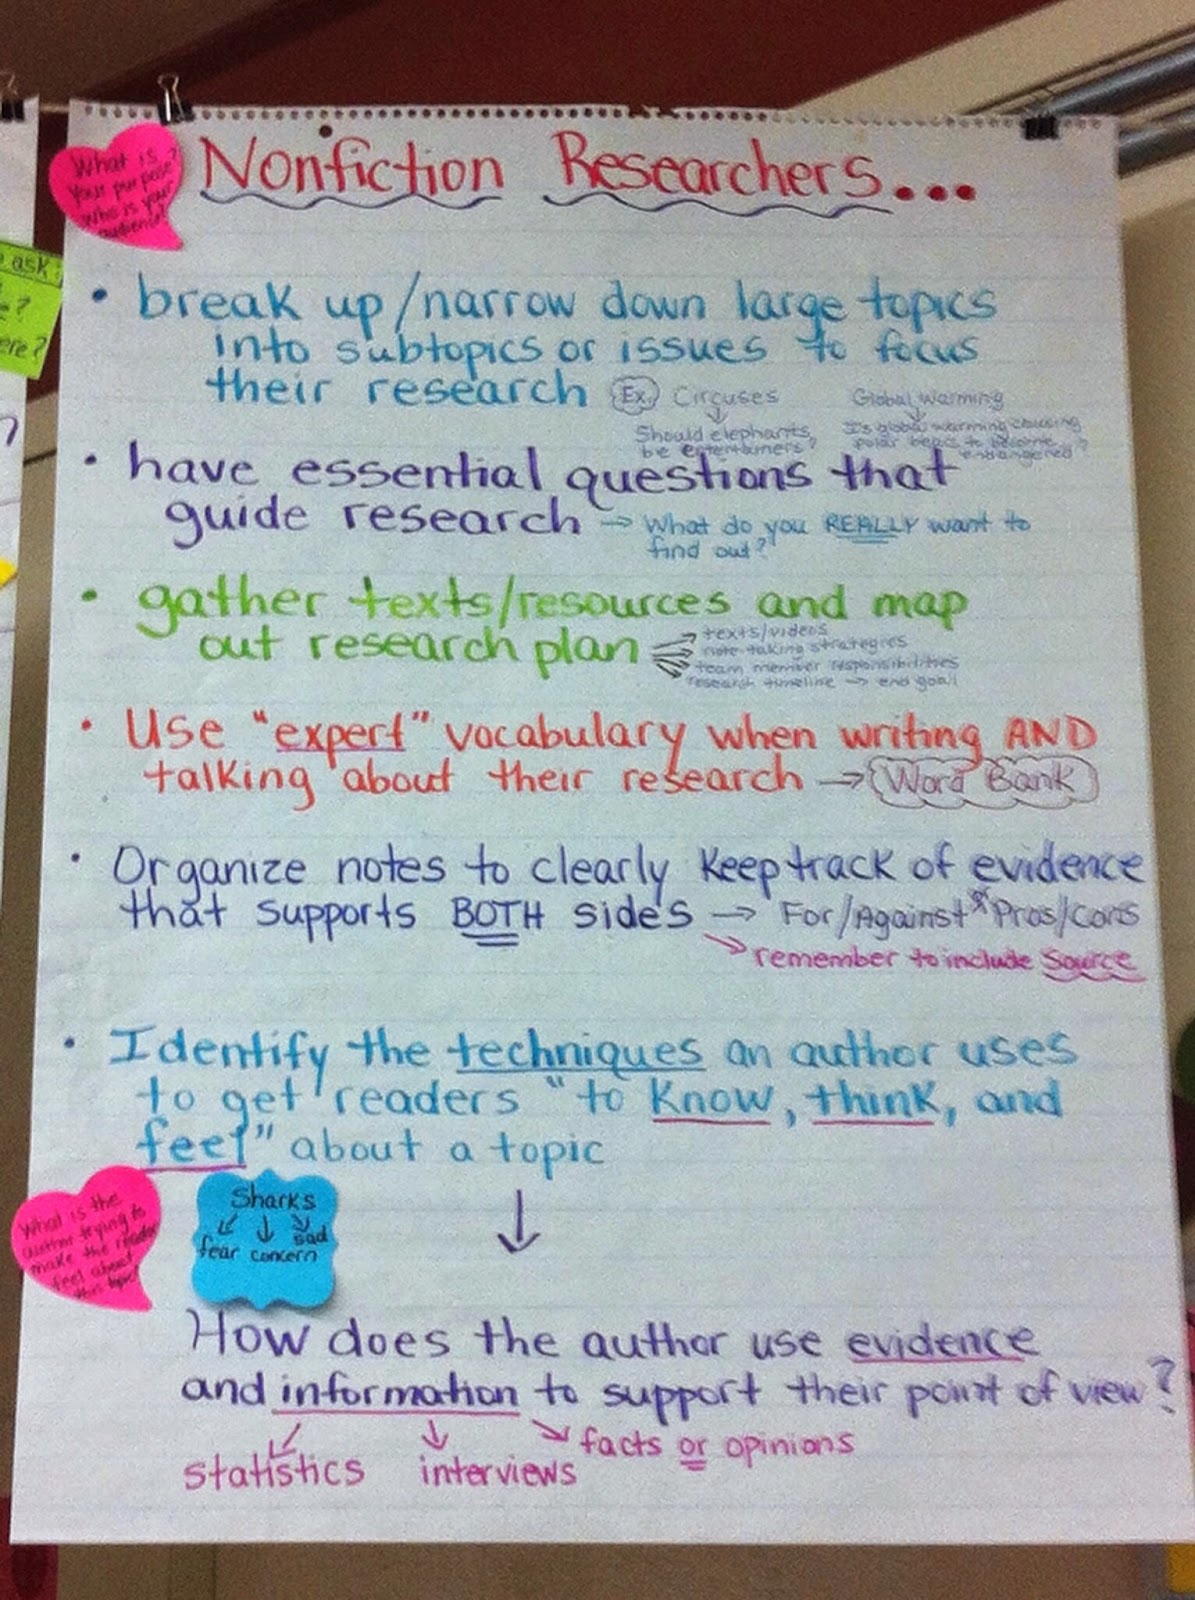 What is
your purpose?
Who is your
audience?
Nonfiction Researchers...
ask:
?
ere?
• break up/narrow down large topics
into subtopics or issues to focus
their research
Ex. Circuses
Should elephants
be entertainers?
Global Warming
Is global warming causing
polar bears to become
endangered?
• have essential questions that
guide research → What do you REALLY want to
find out?
• gather texts/resources and map
out research plan
texts/videos
note-taking strategies
team member responsibilities
research timeline → end goal
• Use "expert" vocabulary when writing AND
talking about their research → Word Bank
• Organize notes to clearly keep track of evidence
that supports BOTH sides → For/Against * Pros/Cons
→ remember to include Source
• Identify the techniques an author uses
to get readers "to know, think, and
feel" about a topic
What is the
author trying to
make the reader
feel about
this topic?
Sharks
sad
fear concern
How does the author use evidence
and information to support their point of view?
facts or opinions
statistics interviews